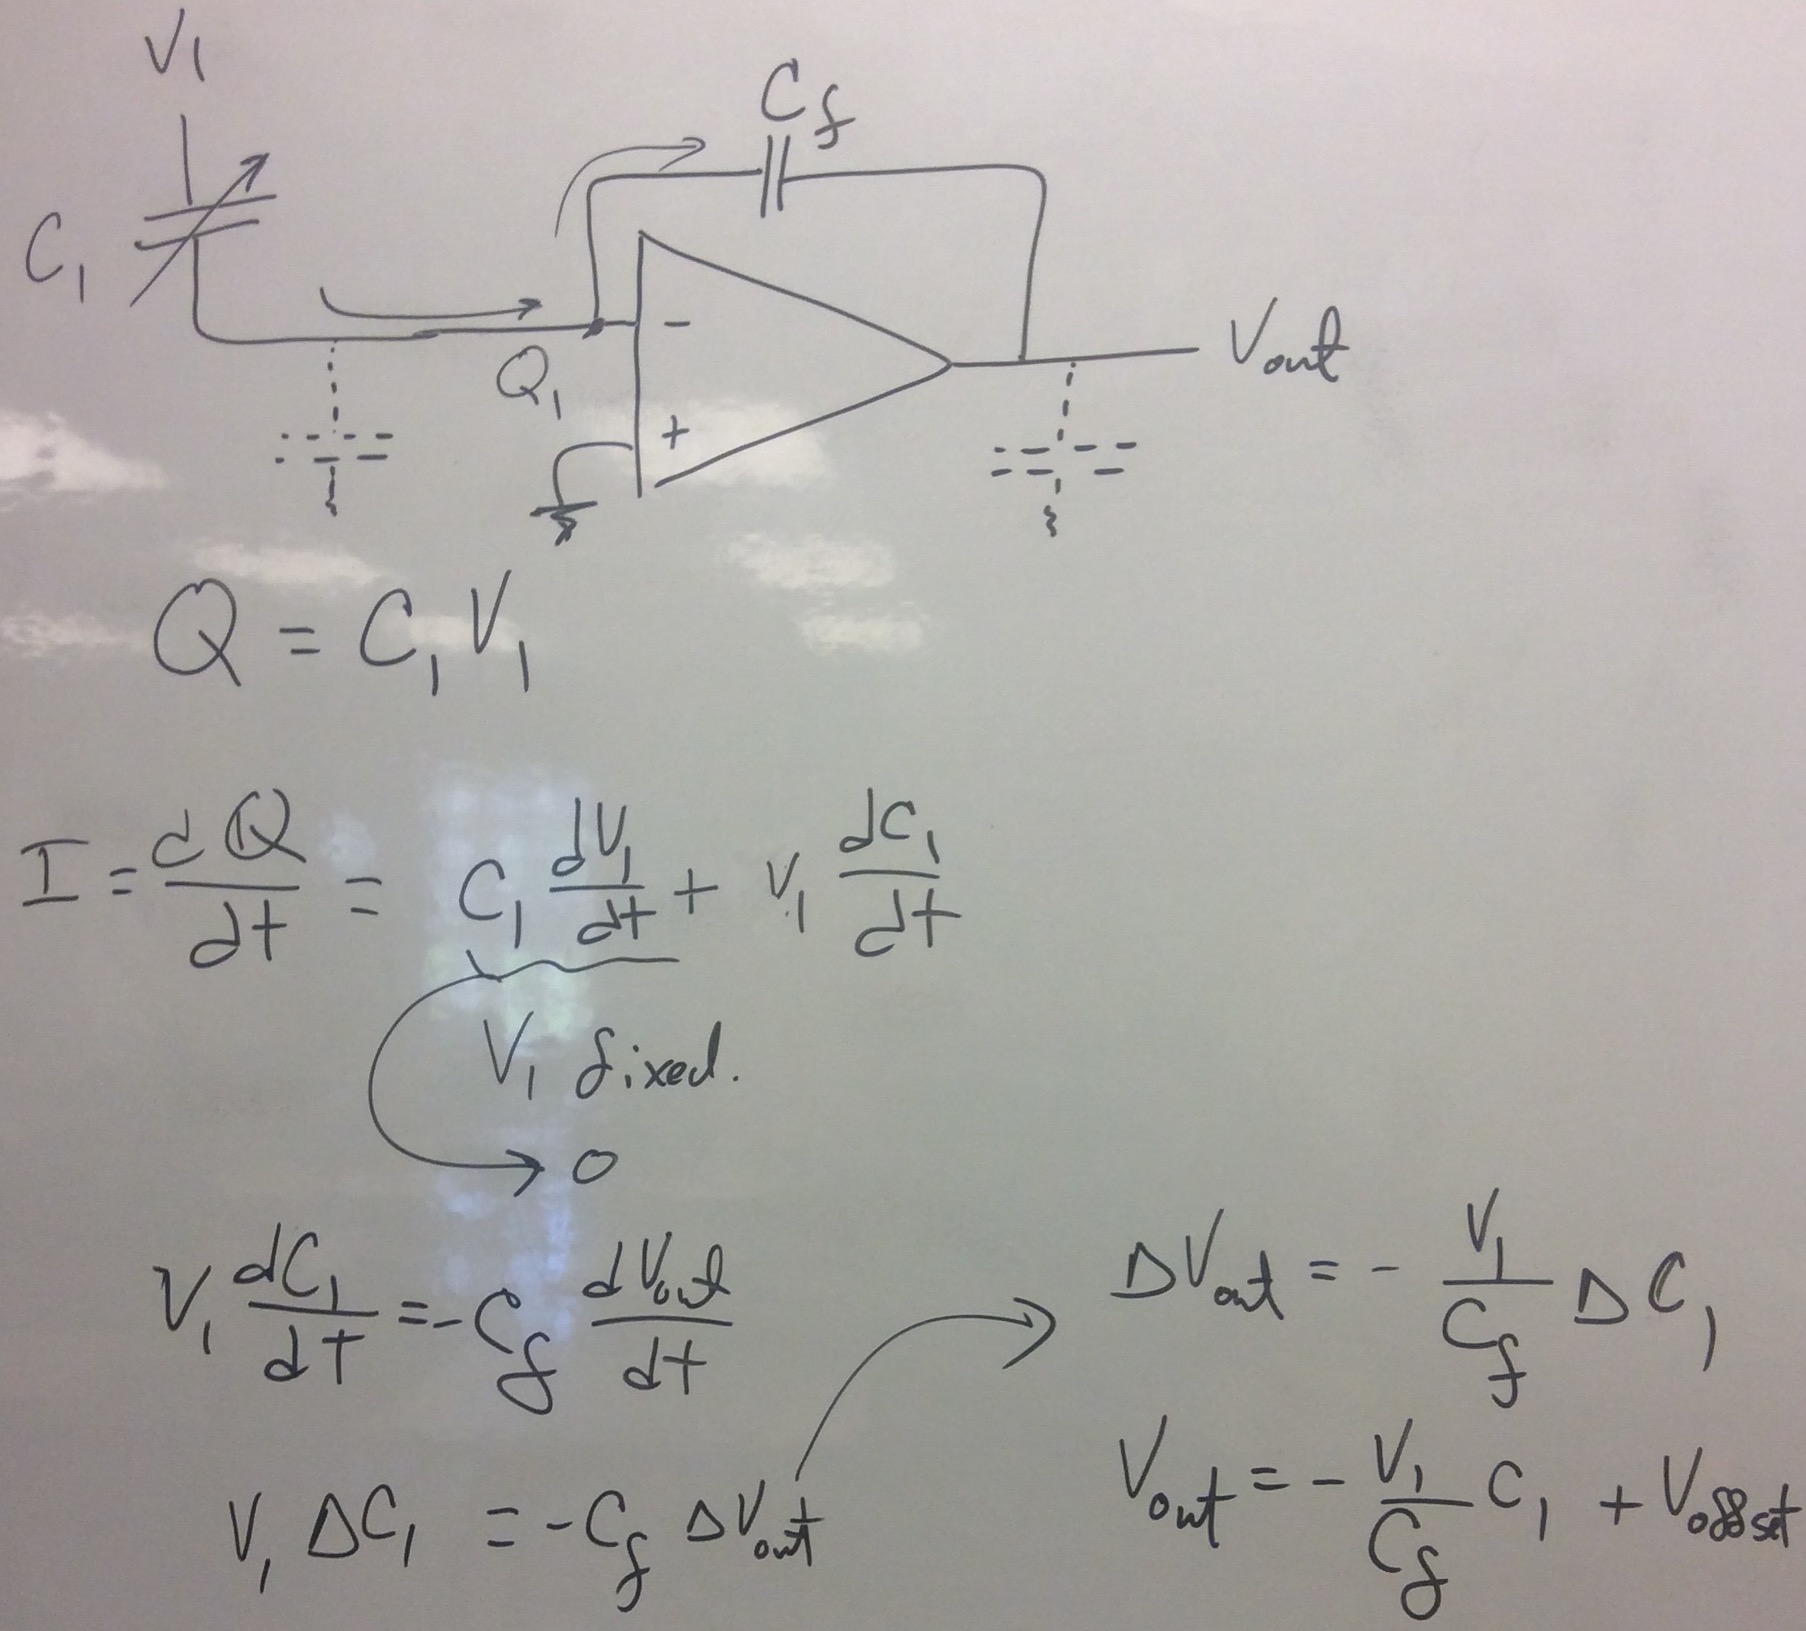 V₁
C_f
C₁
-
V_out
Q₁
+
Q = C₁V₁
I = dQ/dt = C₁ dV₁/dt + V₁ dC₁/dt
V₁ fixed.
0
V₁ dC₁/dt = -C_f dV_out/dt
V₁ ΔC₁ = -C_f ΔV_out
ΔV_out = - V₁/C_f ΔC₁
V_out = - V₁/C_f C₁ + V_offset